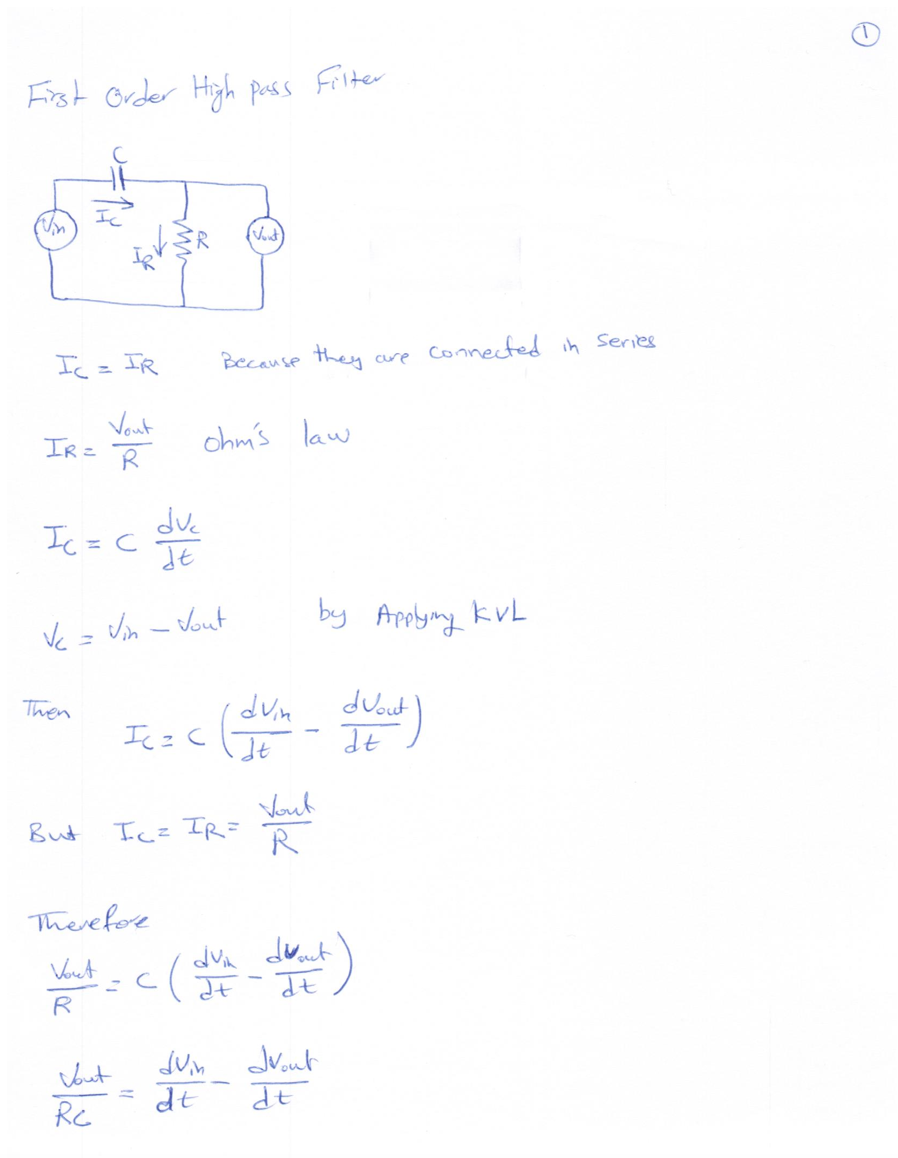 ①
First Order High pass Filter
C
Ic
Vin
IR
R
Vout
Ic = IR Because they are connected in series
IR = Vout/R ohm's law
Ic = C dVc/dt
Vc = Vin - Vout by Applying KVL
Then
Ic = C (dVin/dt - dVout/dt)
But Ic = IR = Vout/R
Therefore
Vout/R = C (dVin/dt - dVout/dt)
Vout/RC = dVin/dt - dVout/dt